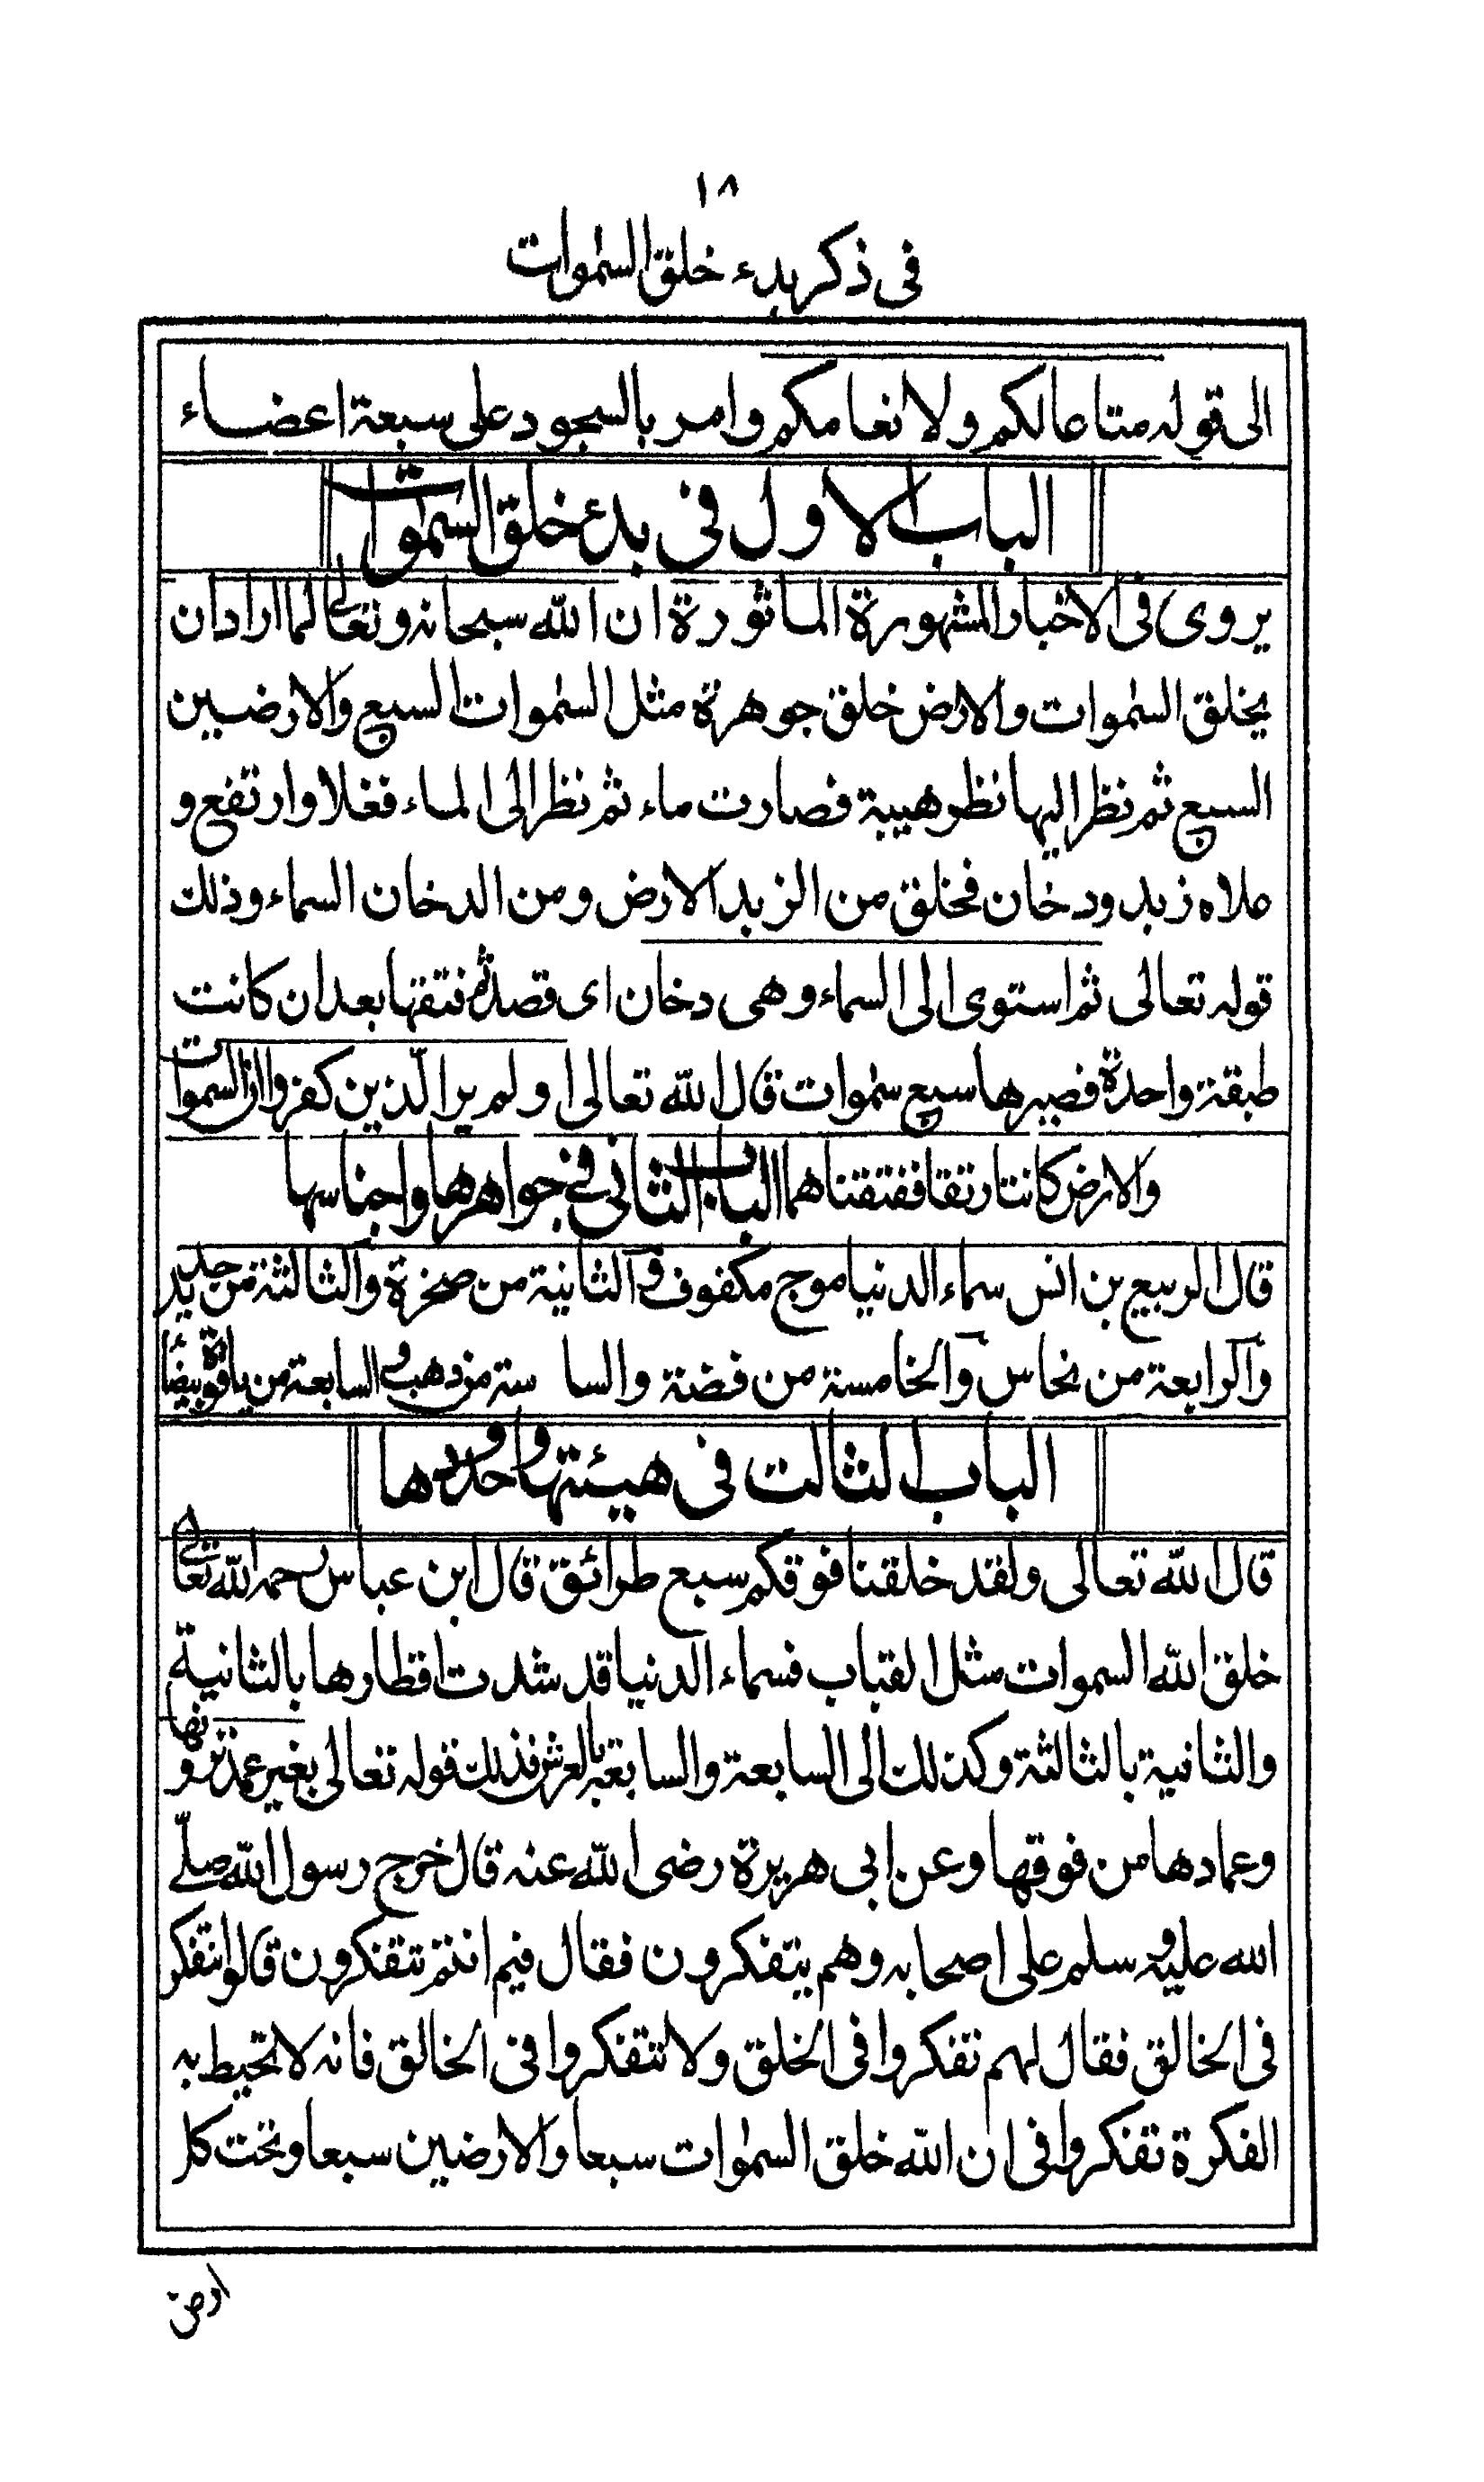 ١٨
فى ذكر بدء خلق السمٰوات
الى قوله متاعا لكم ولانعامكم وامر بالسجود على سبعة اعضاء
الباب الاول فى بدء خلق السمٰوات
يروى فى الاخبار المشهورة الماثورة ان الله سبحانه وتعالى لما اراد ان
يخلق السمٰوات والارض خلق جوهرة مثل السمٰوات السبع والارضين
السبع ثم نظر اليها نظر هيبة فصارت ماء ثم نظر الى الماء فغلا وارتفع و
علاه زبد ودخان فخلق من الزبد الارض ومن الدخان السماء وذلك
قوله تعالى ثم استوى الى السماء وهى دخان اى قصد ثم فتقها بعد ان كانت
طبقة واحدة فصيرها سبع سمٰوات قال الله تعالى اولم ير الّذين كفروا ان السموات
والارض كانتا رتقا ففتقناهما الباب الثانى فى جواهرها واجناسها
قال الربيع بن انس سماء الدنيا موج مكفوف والثانية من صخرة والثالثة من حديد
والرابعة من نحاس والخامسة من فضة والسا سة من ذهب و السابعة من ياقوتة بيضاء
الباب الثالث فى هيئتها وحدودها
قال الله تعالى ولقد خلقنا فوقكم سبع طرائق قال ابن عباس رحمه الله تعالى
خلق الله السموات مثل القباب فسماء الدنيا قد شدت اقطارها بالثانية
والثانية بالثالثة وكذلك الى السابعة والسابعة بالعرش فذلك قوله تعالى بغير عمد ترونها و
وعمادها من فوقها وعن ابى هريرة رضى الله عنه قال خرج رسول الله صلّے
الله عليه و سلم على اصحابه وهم يتفكرون فقال فيم انتم تتفكرون قالوا نتفكر
فى الخالق فقال لهم تفكروا فى الخلق ولا تتفكروا فى الخالق فانه لا تحيط به
الفكرة تفكروا فى ان الله خلق السمٰوات سبعا والارضين سبعا وتحت كل
ارض